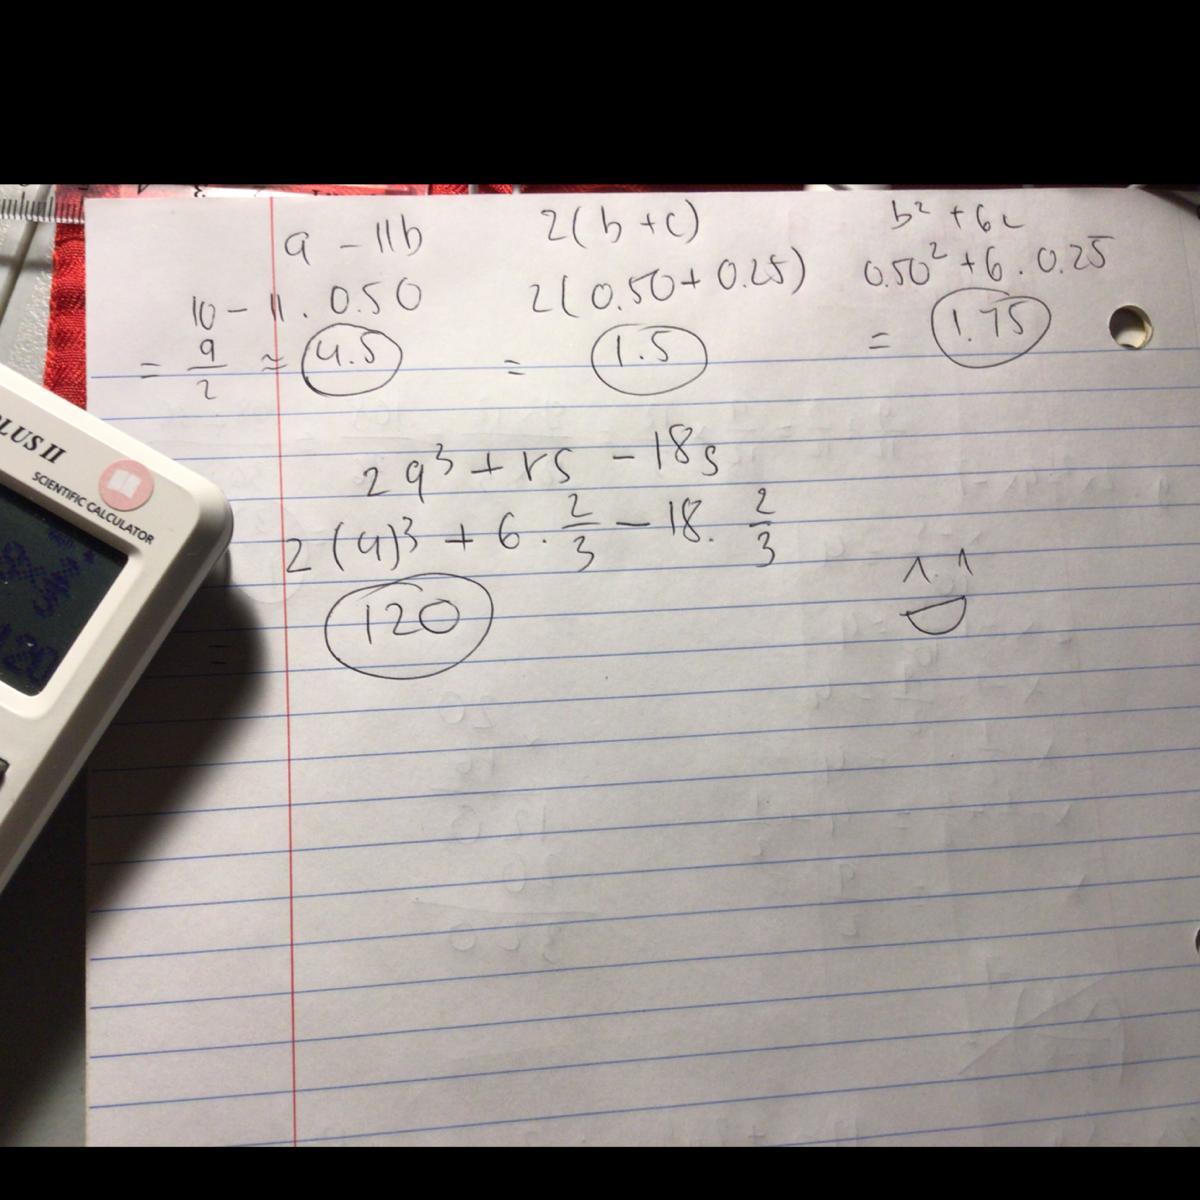 a - 11b
10 - 11 . 0.50
= 9/2 ≈ 4.5
2(b + c)
2(0.50 + 0.25)
= 1.5
b² + 6c
0.50² + 6 . 0.25
= 1.75
2q³ + rs - 18s
2(4)³ + 6 . 2/3 - 18 . 2/3
= 120
PLUS II
SCIENTIFIC CALCULATOR
120